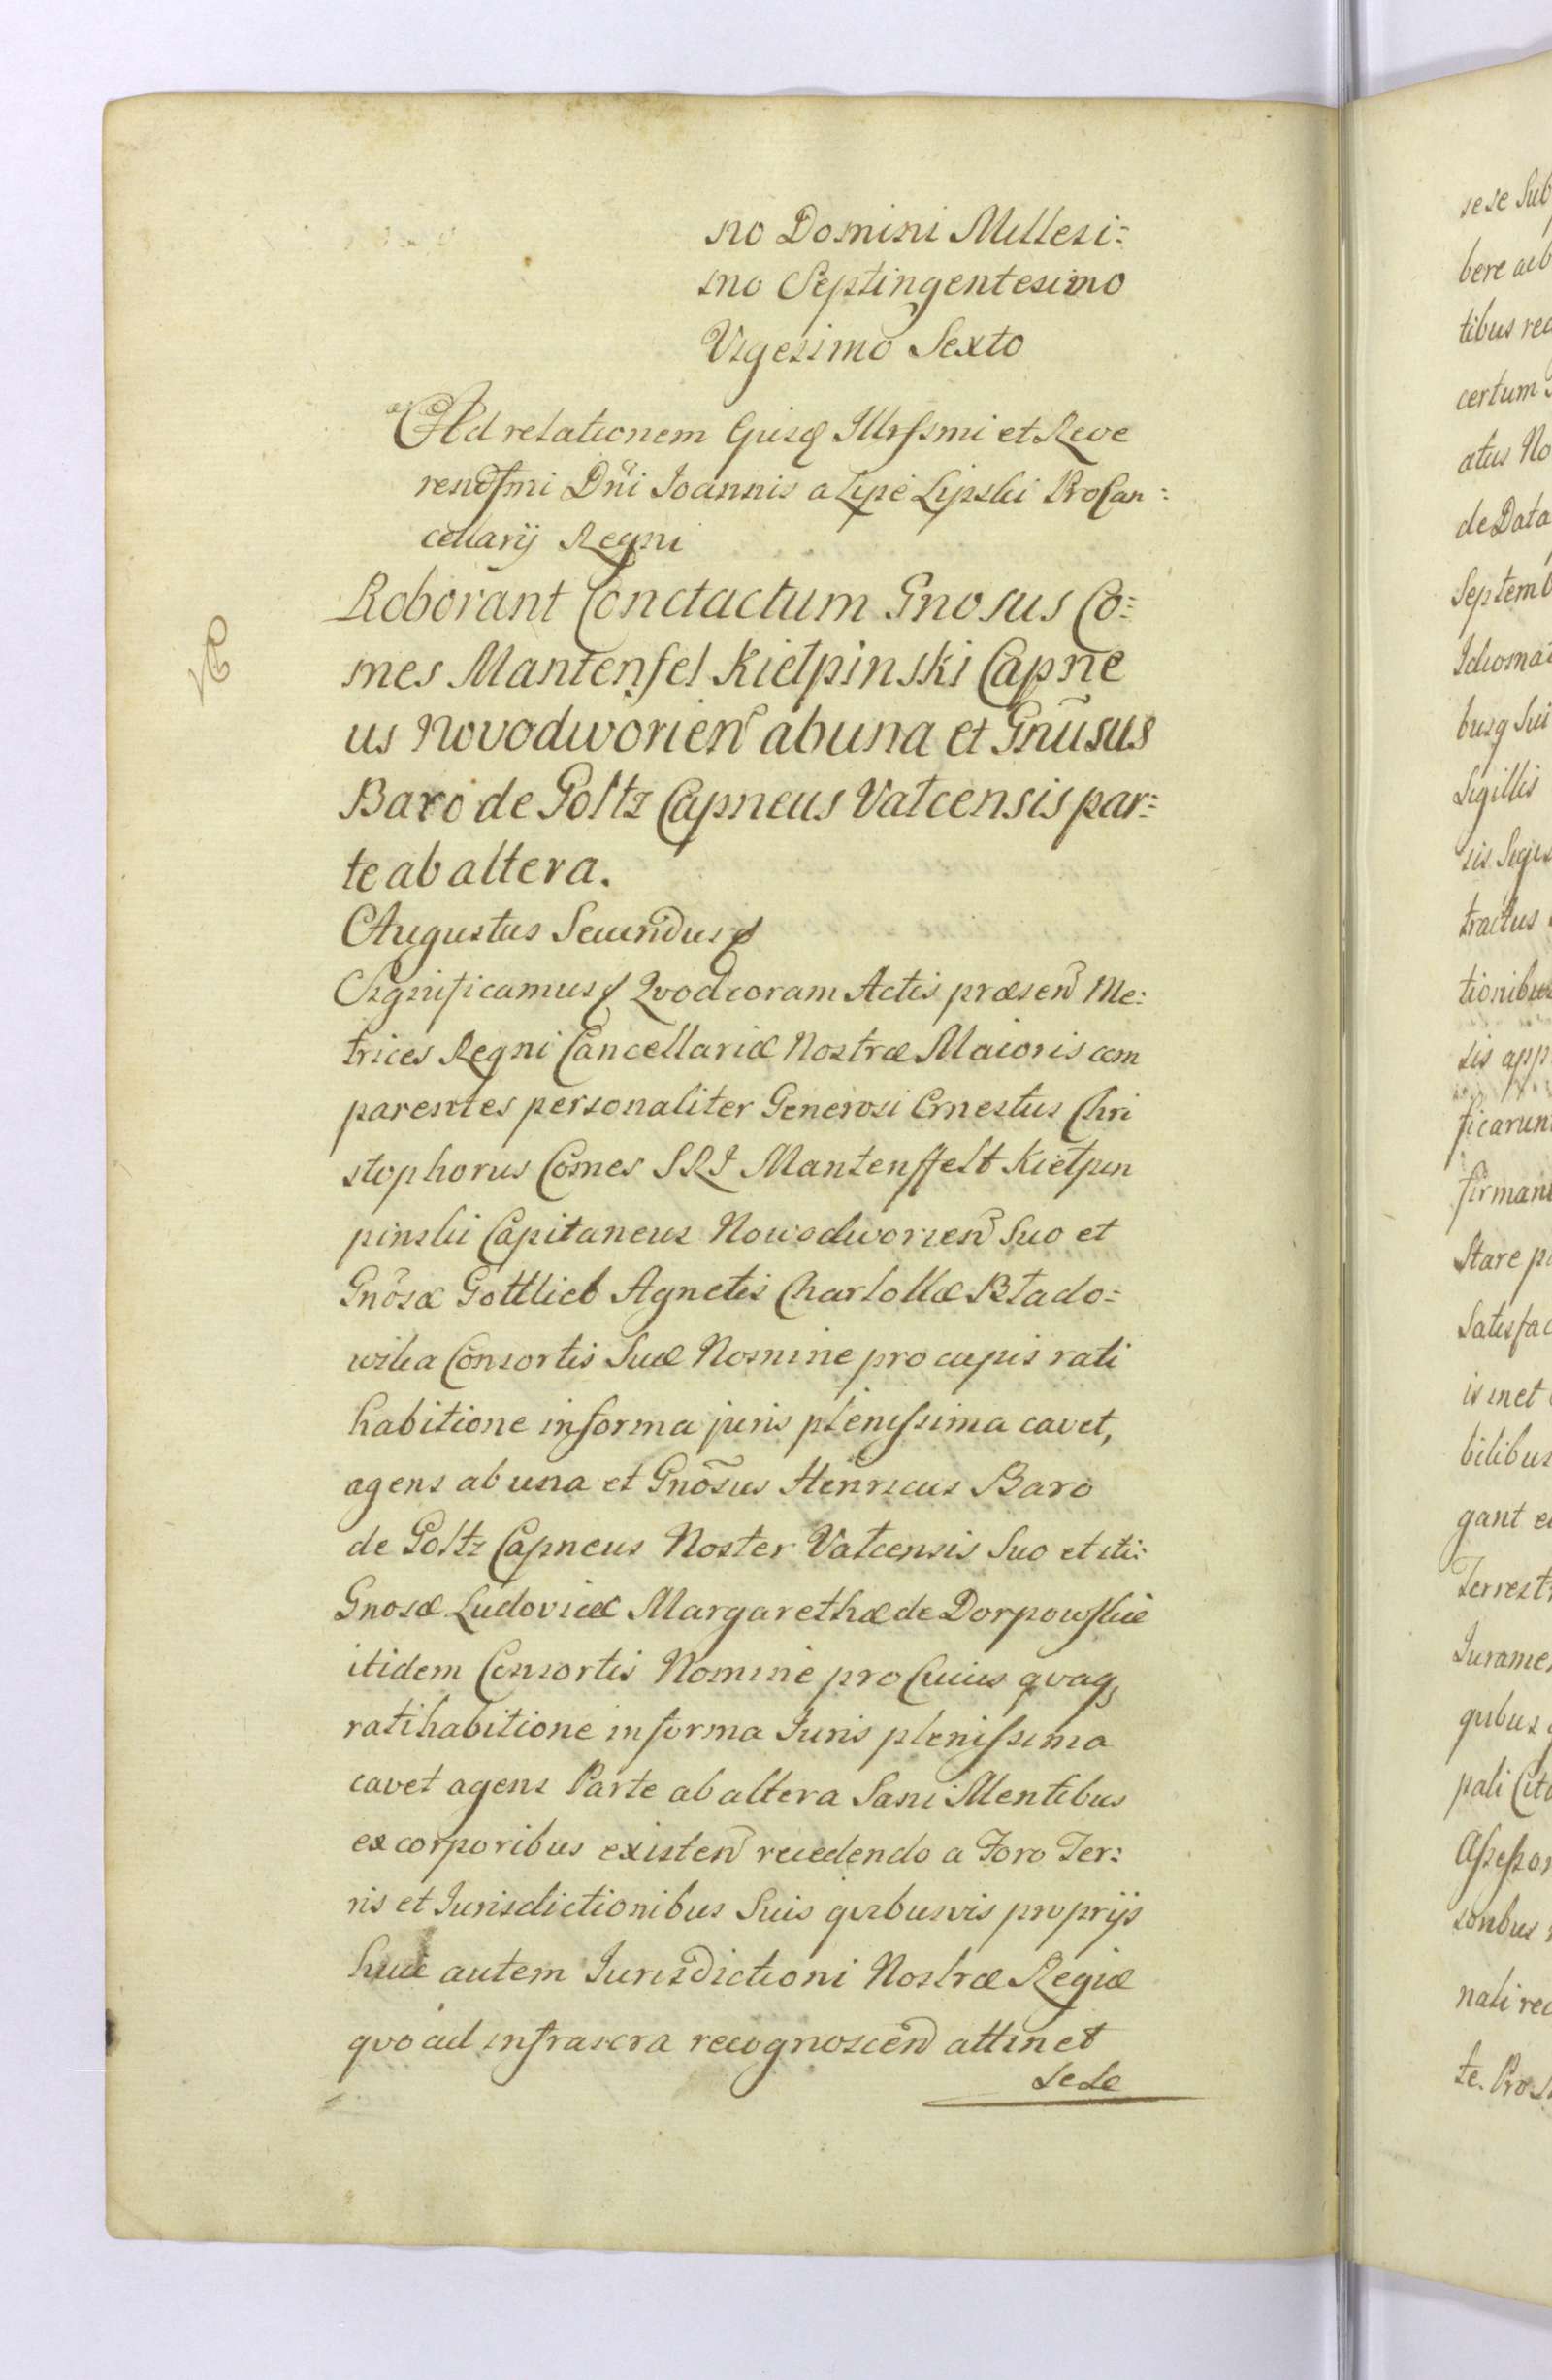 no Domini Millesi:
mo Septingentesimo
Vigesimo Sexto
Ad relationem Eiusd Illrssmi et Reve
rendssmi Dni Joannis a Lipe Lipski ProCan:
cellarij Regni
Roborant Conctactum Gnosus Co:
mes Mantenfel Kiełpinski Capne
us Novodworien ab una et Gnusus
Baro de Goltz Capneus Vatcensis par:
te ab altera.
Augustus Secundus
Significamus Qvod coram Actis præsen Me:
trices Regni Cancellariæ Nostræ Maioris com
parentes personaliter Generosi Ernestus Chri
stophorus Comes SRI Mantenffelt Kiełpin
pinski Capitaneus Nowodworien Suo et
Gnosæ Gottlieb Agnetis Charlottæ Błado:
wska Consortis Suæ Nomine pro cujus rati
habitione in forma juris plenissima cavet,
agens ab una et Gnosus Henricus Baro
de Goltz Capneus Noster Vatcensis Suo et iti:
Gnosæ Ludovicæ Margarethæ de Dorpowskie
itidem Consortis Nomine pro Cuius qvaq
ratihabitione in forma Juris plenissima
cavet agens Parte ab altera Sani Mentibus
ex corporibus existen recedendo a Foro Ter:
ris et Jurisdictionibus Suis qvibusvis proprijs
huic autem Jurisdictioni Nostræ Regiæ
qvo ad infrascra recognoscen attinet
sese
sese Sub
bere ab
tibus rec
certum
atus No
de Data
Septemb
Idiomat
burg Sui
Sigillis
sis
tractus
tionibus
sis app
ficarun
firmant
Stare p
Satisfac
is met
bilibus
gant e
Terrest
Jurame
qvibus
pali Cit
Assessor
nali rec
te. Pro